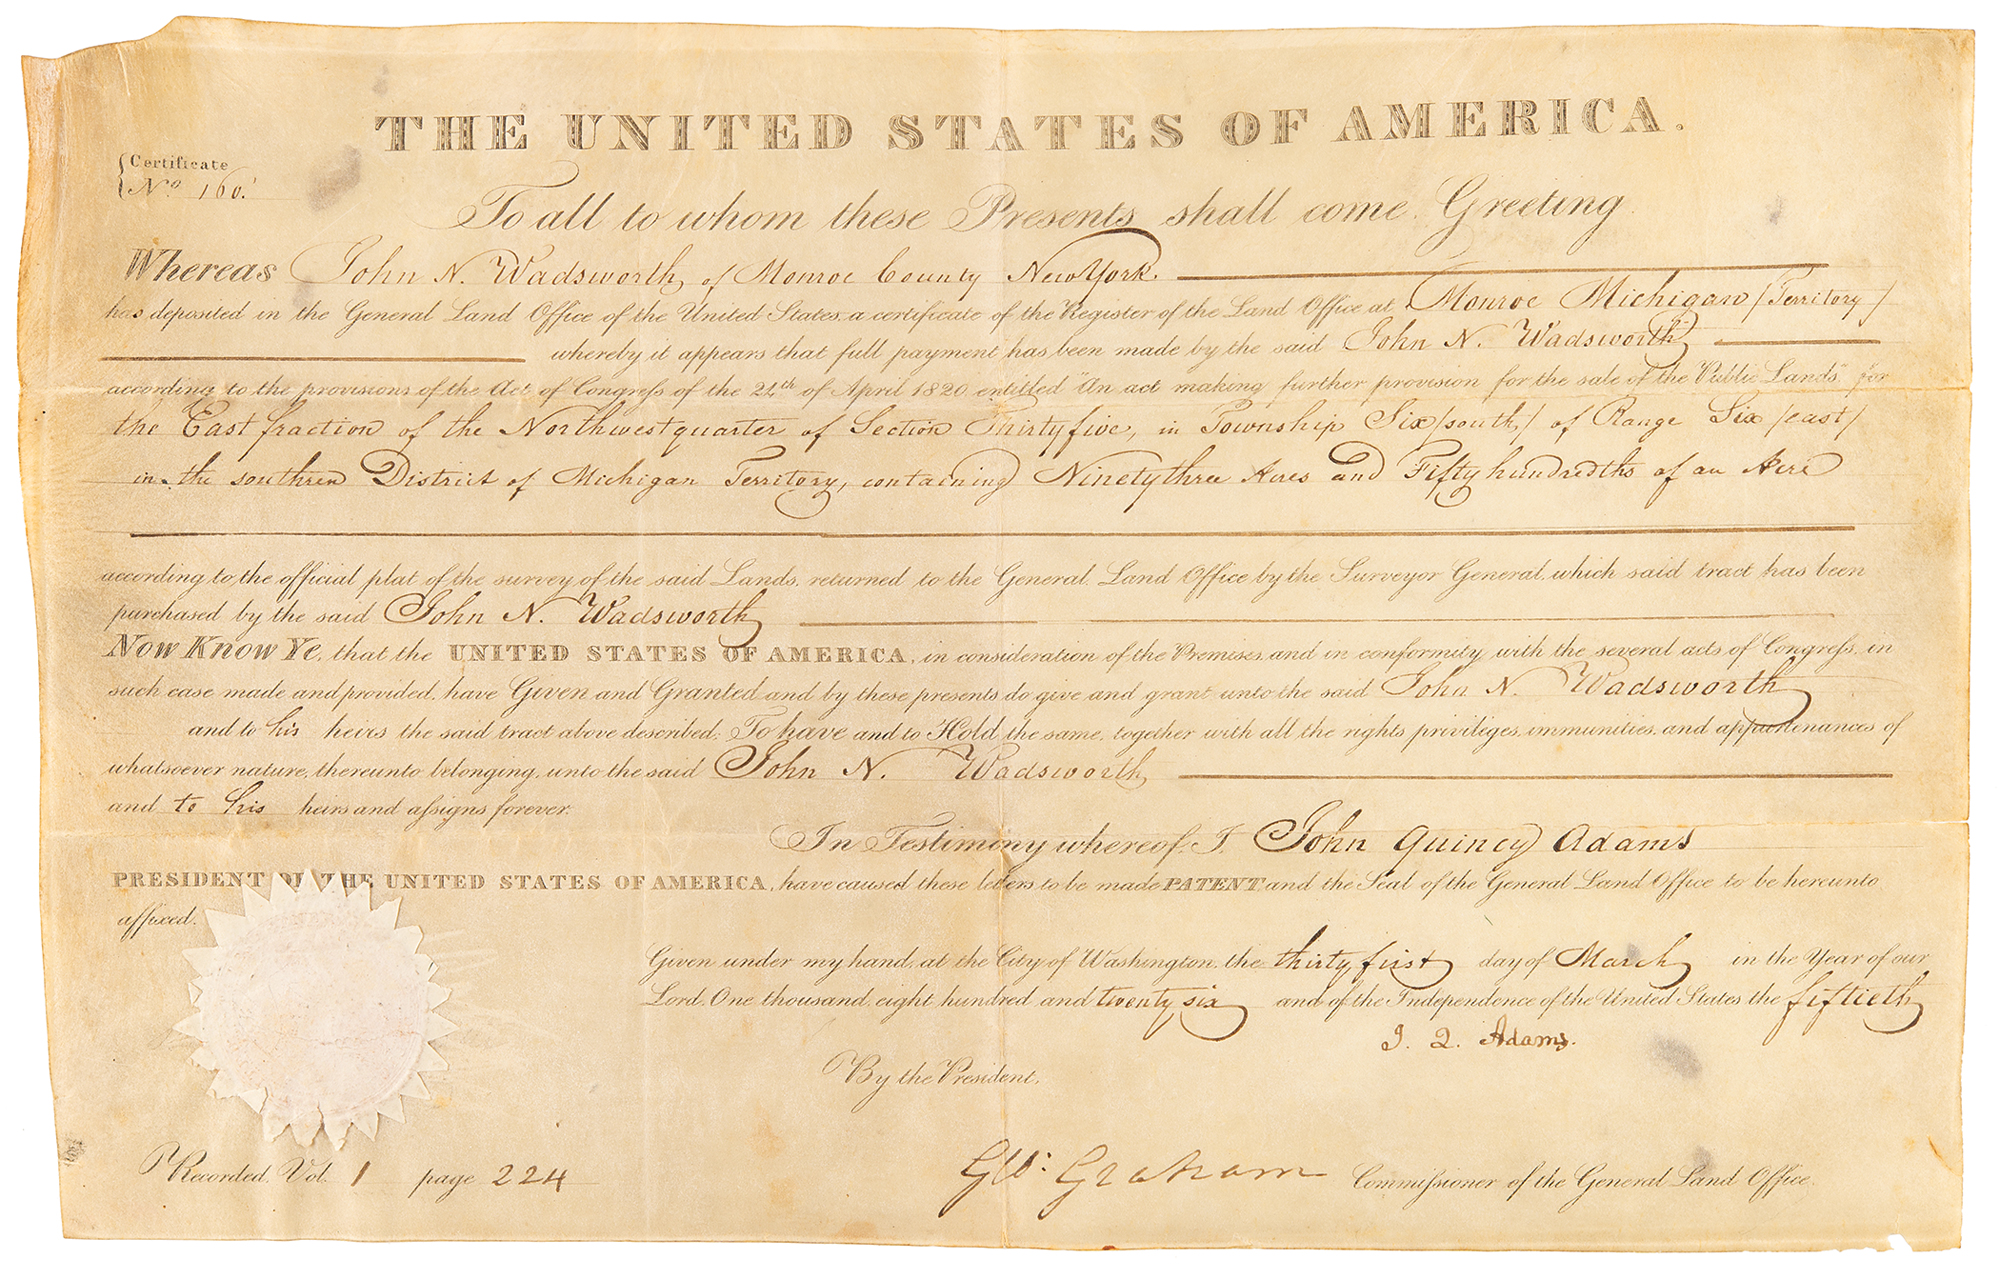 THE UNITED STATES OF AMERICA.
Certificate
No. 160.
To all to whom these Presents shall come. Greeting
Whereas John N. Wadsworth, of Monroe County New York.
has deposited in the General Land Office of the United States, a certificate of the Register of the Land Office at Monroe Michigan /Territory/
whereby it appears that full payment has been made by the said John N. Wadsworth
according to the provisions of the Act of Congress of the 24th of April 1820 entitled "An act making further provision for the sale of the Public Lands", for
the East fraction of the Northwest quarter of Section Thirty five, in Township Six /south/ of Range Six /east/
in the southren District of Michigan Territory, containing Ninety three Acres and Fifty hundredths of an Acre
according to the official plat of the survey of the said Lands, returned to the General Land Office by the Surveyor General, which said tract has been
purchased by the said John N. Wadsworth
Now Know Ye, that the UNITED STATES OF AMERICA, in consideration of the Premises, and in conformity with the several acts of Congress, in
such case made and provided, have Given and Granted and by these presents do give and grant unto the said John N. Wadsworth
and to his heirs the said tract above described; To have and to Hold the same, together with all the rights priviliges, immunities, and appurtenances of
whatsoever nature, thereunto belonging, unto the said John N. Wadsworth
and to his heirs and assigns forever.
In Testimony whereof, I John Quincy Adams
PRESIDENT OF THE UNITED STATES OF AMERICA, have caused these letters to be made PATENT and the Seal of the General Land Office to be hereunto
affixed.
Given under my hand, at the City of Washington, the thirty first day of March in the Year of our
Lord, One thousand eight hundred and twenty six and of the Independence of the United States the fiftieth
J. Q. Adams.
By the President,
Recorded, Vol. 1 page 224
Gw: Graham Commissioner of the General Land Office.